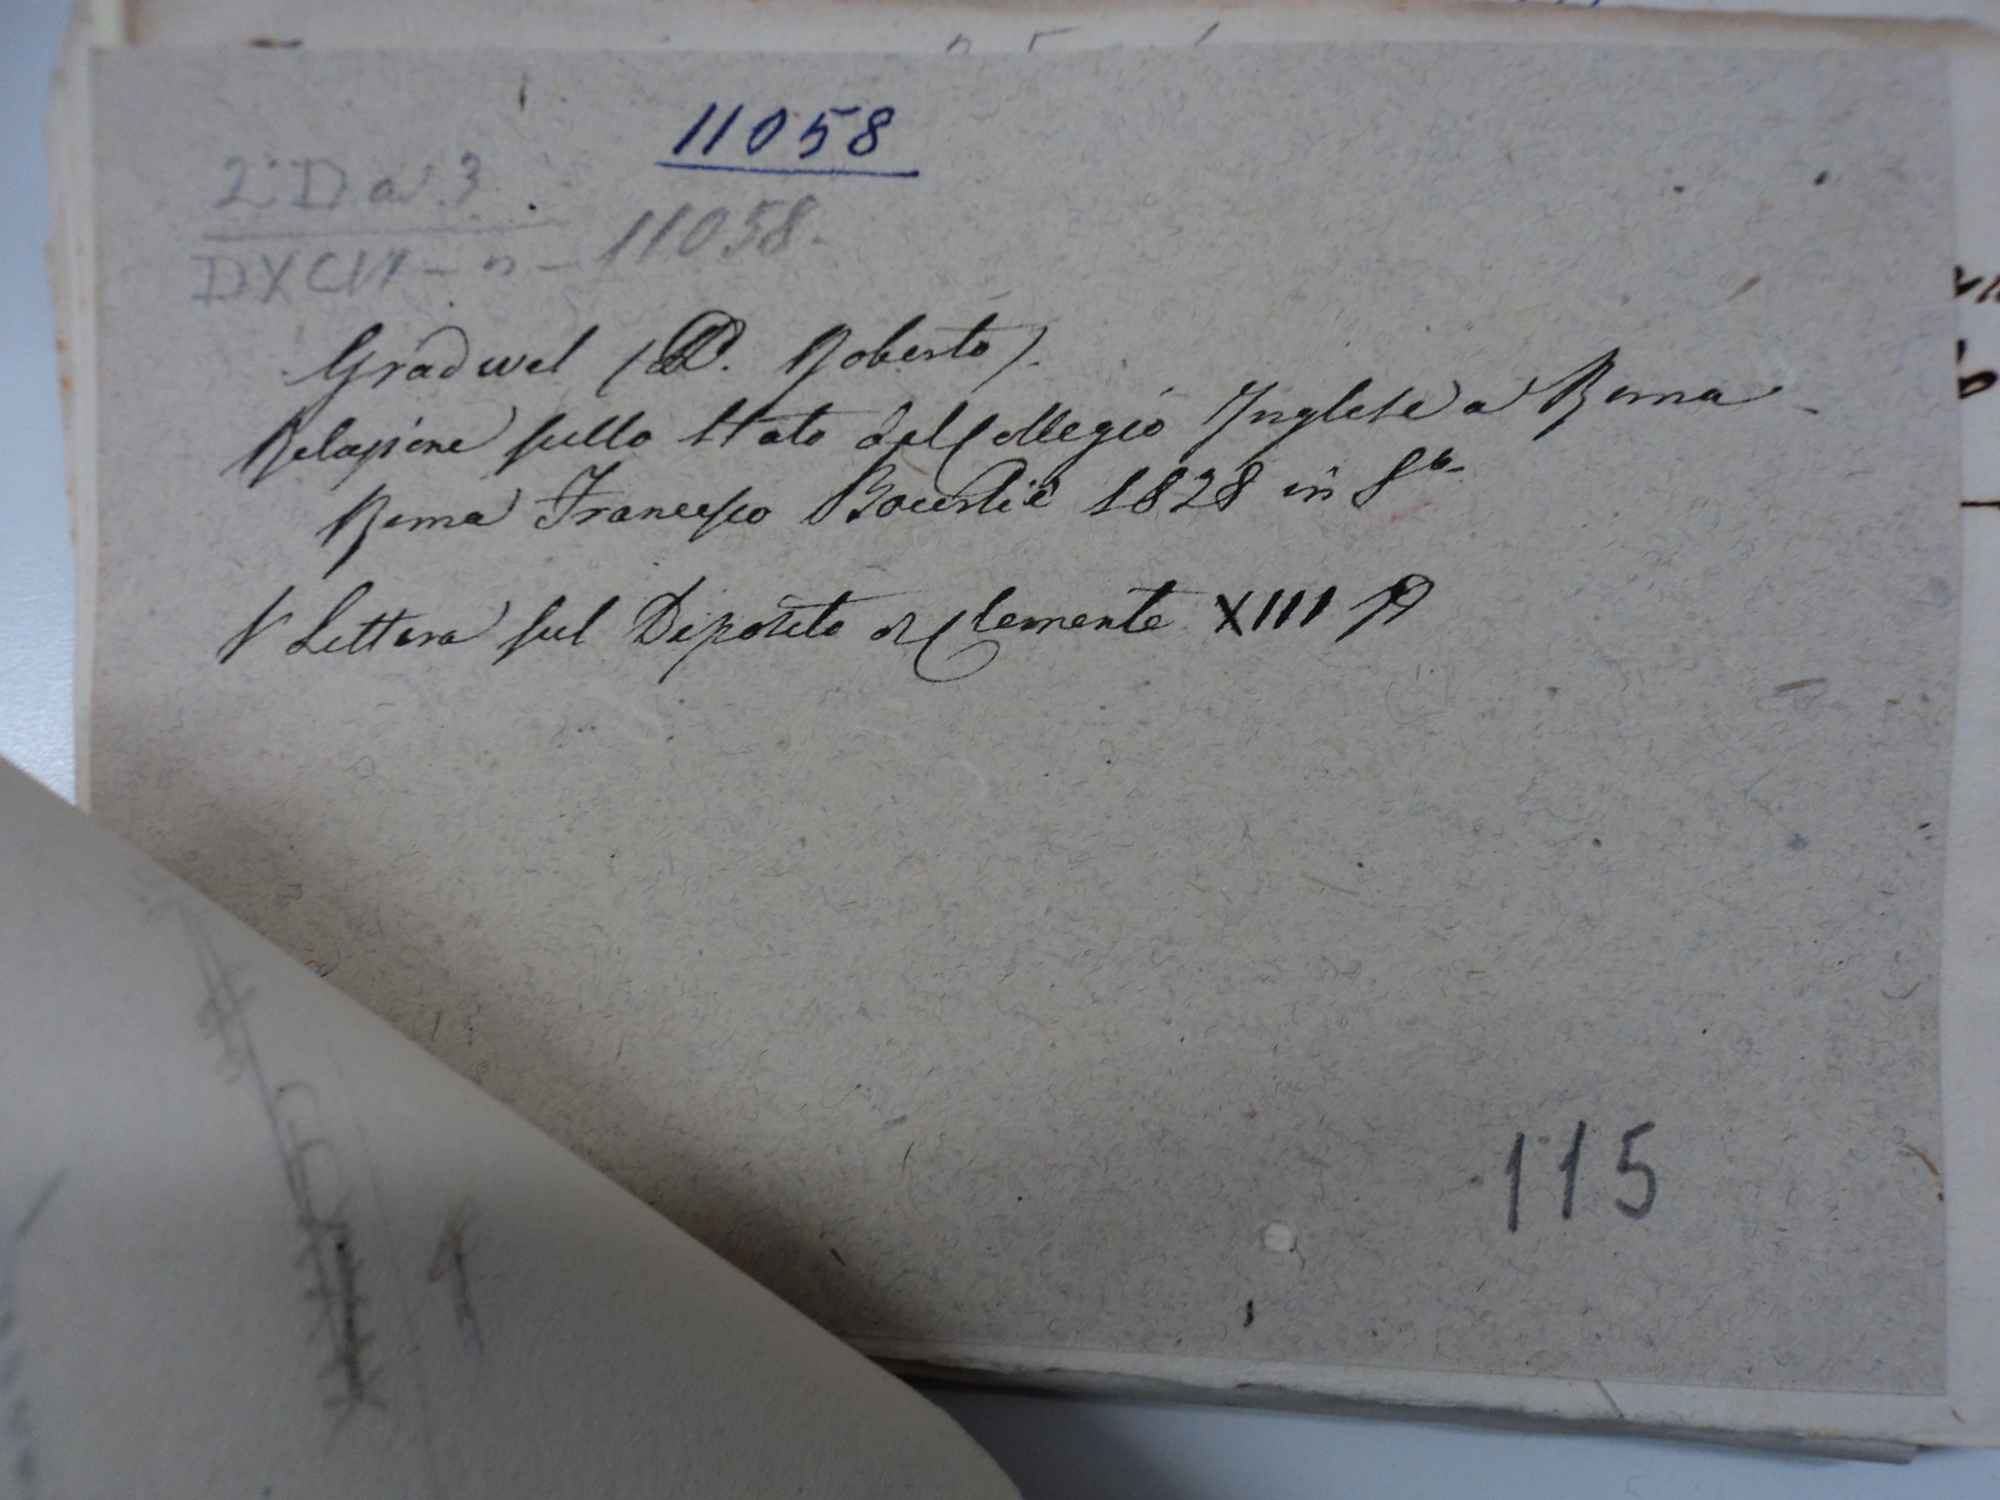 11058
2 D a 3
DXCIII - n - 11058.
Gradwel (D. Roberto).
Relazione sullo Stato del Collegio Inglese a Roma
Roma Francesco Bourliè 1828 in 8º
V Lettera sul Deposito di Clemente XIII
115